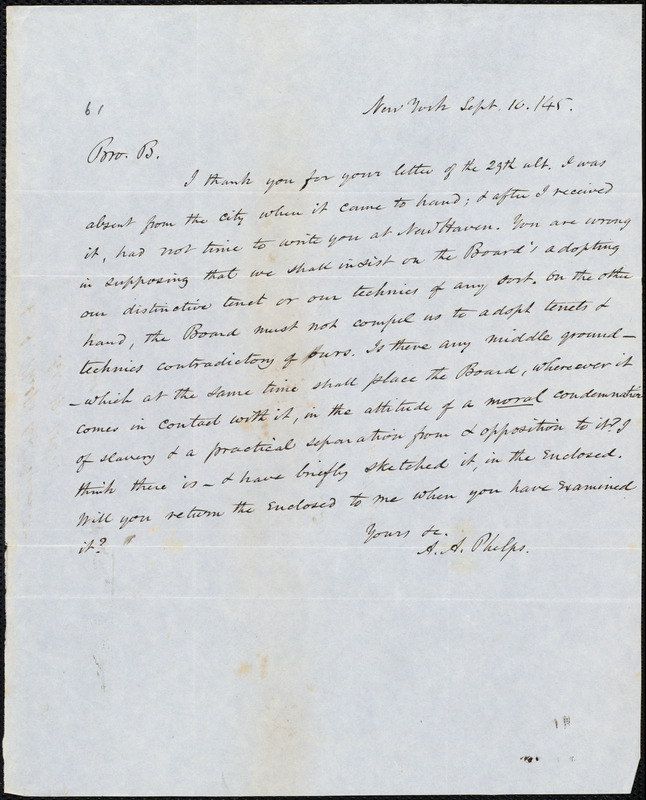 61
New York Sept. 10. /45.
Bro. B.
I thank you for your letter of the 29th ult. I was
absent from the city when it came to hand; & after I received
it, had not time to write you at New Haven. You are wrong
in supposing that we shall insist on the Board's adopting
our distinctive tenet or our technics of any sort. On the other
hand, the Board must not compel us to adopt tenets &
technics contradictory of ours. Is there any middle ground –
– which at the same time shall place the Board, wherever it
comes in contact with it, in the attitude of a moral condemnation
of slavery & a practical separation from & opposition to it? I
think there is – & have briefly sketched it, in the enclosed.
Will you return the enclosed to me when you have examined
it?
Yours &c.
A. A. Phelps.